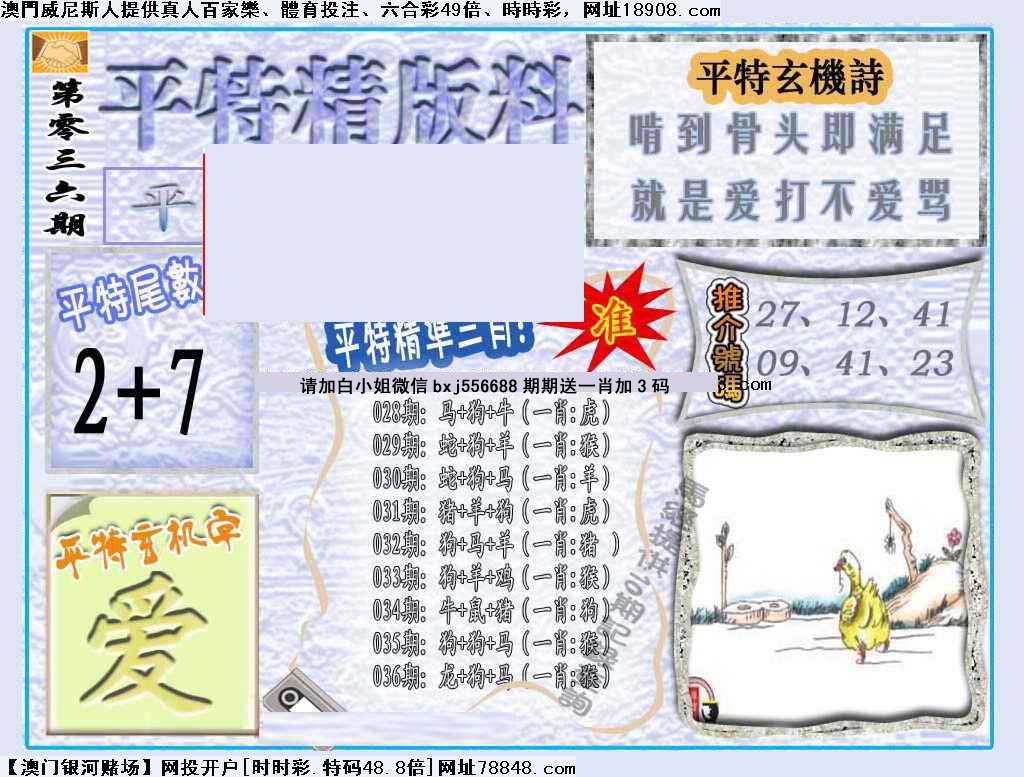 澳門威尼斯人提供真人百家樂、體育投注、六合彩49倍、時時彩，网址18908.com
第零三六期
平特精版料
平
平特玄機詩
啃到骨头即满足
就是爱打不爱骂
平特尾數
2+7
平特精準三肖!
准
推介號碼
27、12、41
09、41、23
请加白小姐微信 bxj556688 期期送一肖加 3 码
.com
028期: 马+狗+牛 (一肖:虎)
029期: 蛇+狗+羊 (一肖:猴)
030期: 蛇+狗+马 (一肖:羊)
031期: 猪+羊+狗 (一肖:虎)
032期: 狗+马+羊 (一肖:猪 )
033期: 狗+羊+鸡 (一肖:猴)
034期: 牛+鼠+猪 (一肖:狗)
035期: 狗+狗+马 (一肖:猴)
036期: 龙+狗+马 (一肖:猴)
平特玄机字
爱
【澳门银河赌场】网投开户[时时彩.特码48.8倍]网址78848.com